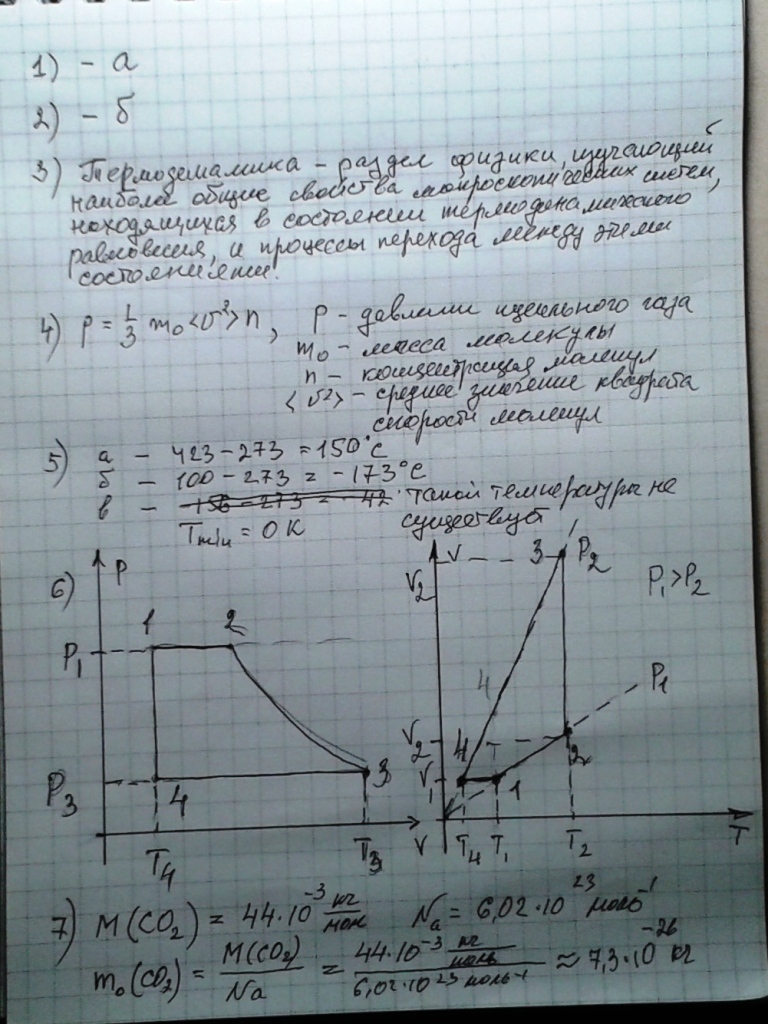 1) - а
2) - б
3) Термодемамика - раздел физики, изучающий
наиболе общие свойства макроскопических систем,
находящихся в состоянии термодинамического
равновесия, и процессы перехода между этими
состояниями.
4) p = 1/3 m₀<υ²>n, p - давление идеального газа
m₀ - масса молекулы
n - концентрация молекул
<υ²> - среднее значение квадрата
скорости молекул
5) а - 423-273 = 150°C
б - 100-273 = -173°C
в - -156-273 = -42 такой температуры не
Tmin = 0 K существует
6) P
1 2
P₁
P₃
4 3
T₄ T₃ V
V 3 P₂
V₂
P₁>P₂
4
P₁
V₂ 4 2
V₁ 1
T₄ T₁ T₂ T
7) M(CO₂) = 44·10⁻³ кг/мол Nа = 6,02·10²³ моль⁻¹
m₀(CO₂) = M(CO₂)/Nа = 44·10⁻³ кг/моль / 6,02·10²³ моль⁻¹ ≈ 7,3·10⁻²⁶ кг